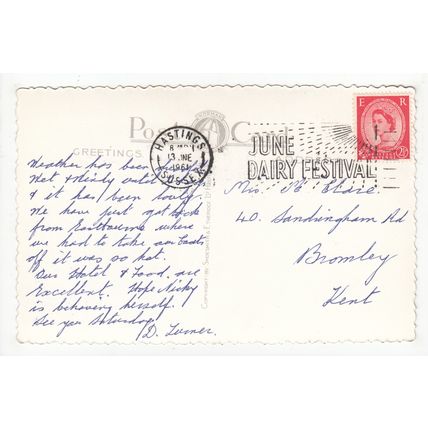 Post Card
GREETINGS
HASTINGS
13 JNE
1961
SUSSEX
JUNE
DAIRY FESTIVAL
E R
2½
Weather has been
until
& it has been lovely.
We have just got back
from Eastbourne where
we had to take our coats
off it was so hot.
Our Hotel & Food are
Excellent. Hope Nicky
is behaving herself.
See you Saturday
D. Turner.
Mrs.
40. Sandringham Rd
Bromley
Kent